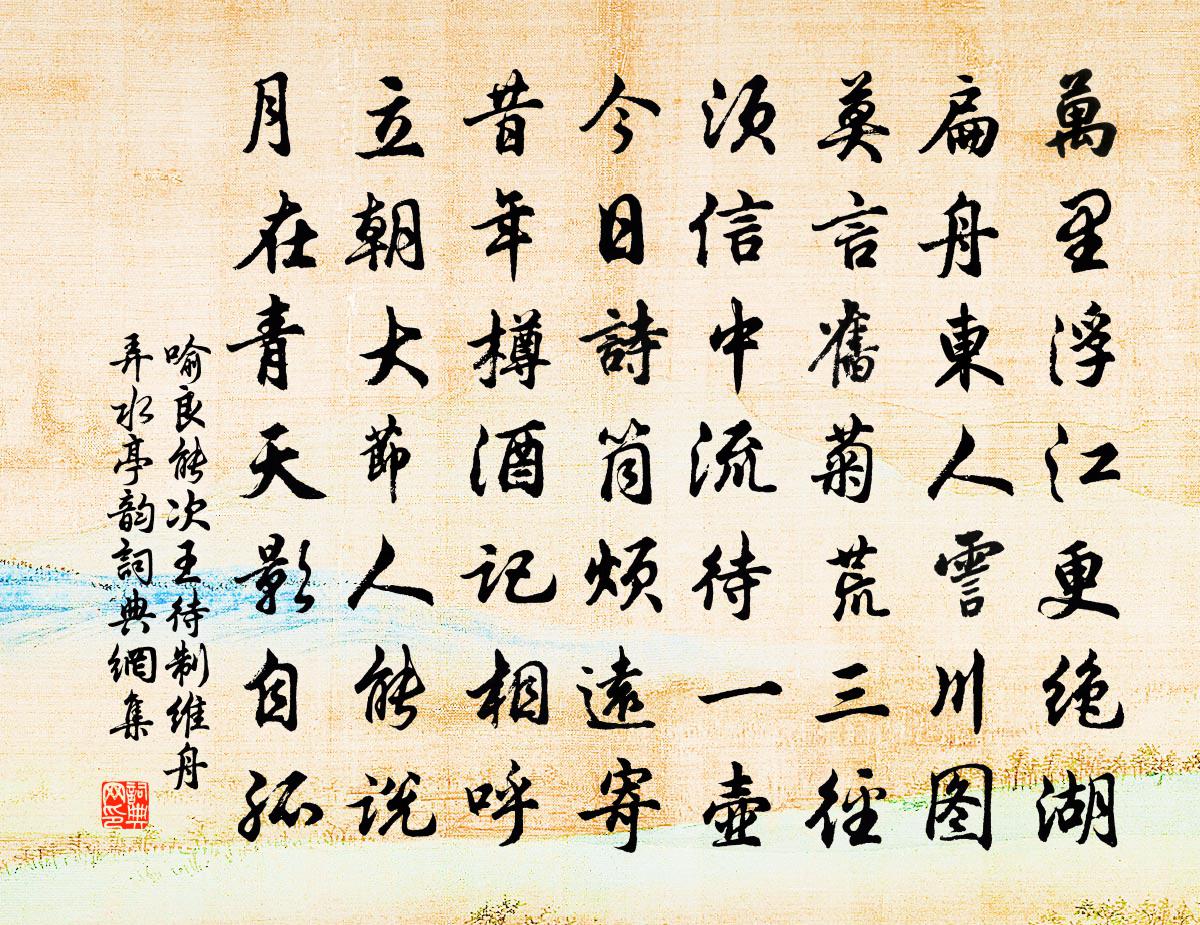 萬里浮江更绝湖
扁舟東人霅川图
莫言舊菊荒三徑
須信中流待一壺
今日詩筒煩遠寄
昔年樽酒記相呼
立朝大節人能说
月在青天影自孤
喻良能次王待制維舟
弄水亭韵詞典網集
詞典
网印